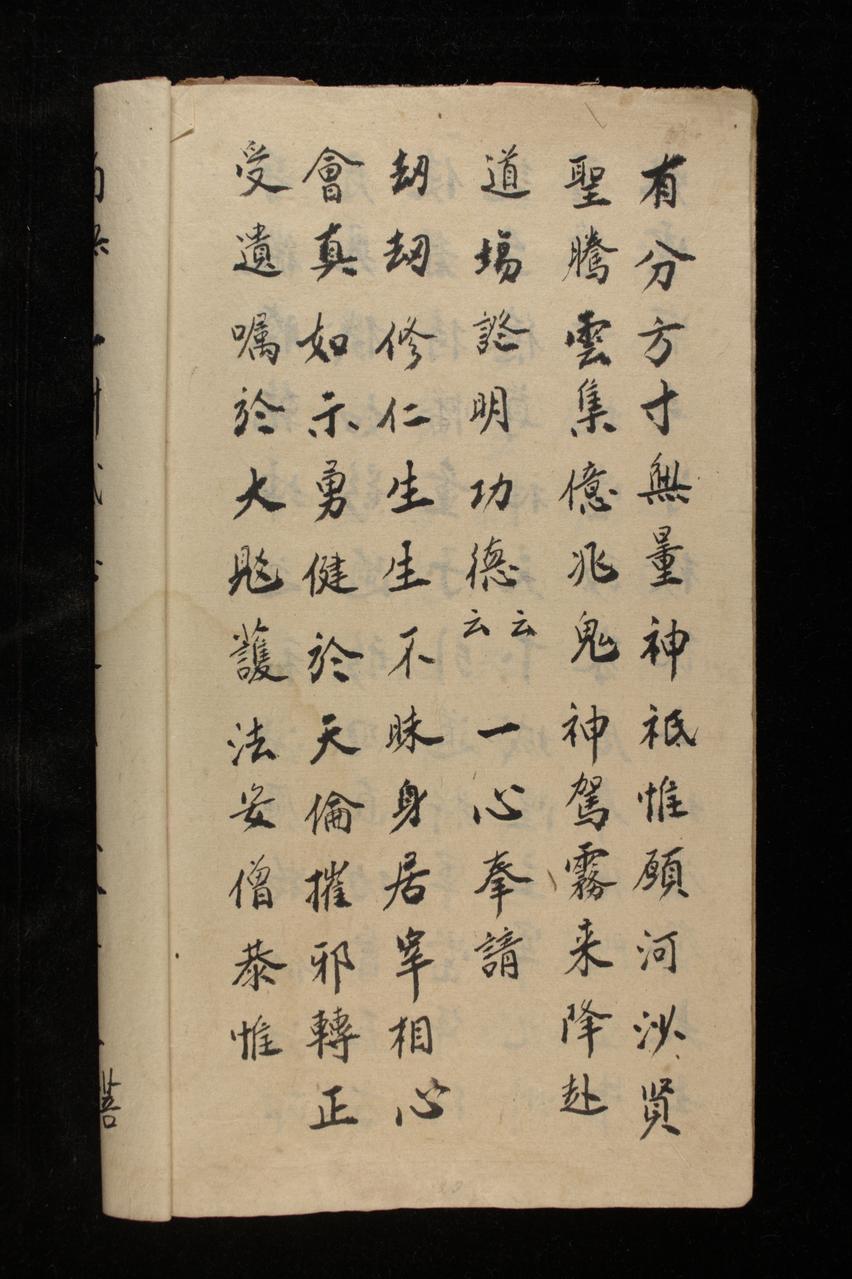 有分方寸無量神祇惟願河沙賢
聖騰雲集億兆鬼神駕霧来降赴
道場證明功德云云 一心奉請
劫劫修仁生生不昧身居宰相心
會真如示勇健於天倫摧邪轉正
受遺嘱於大彪護法安僧恭惟